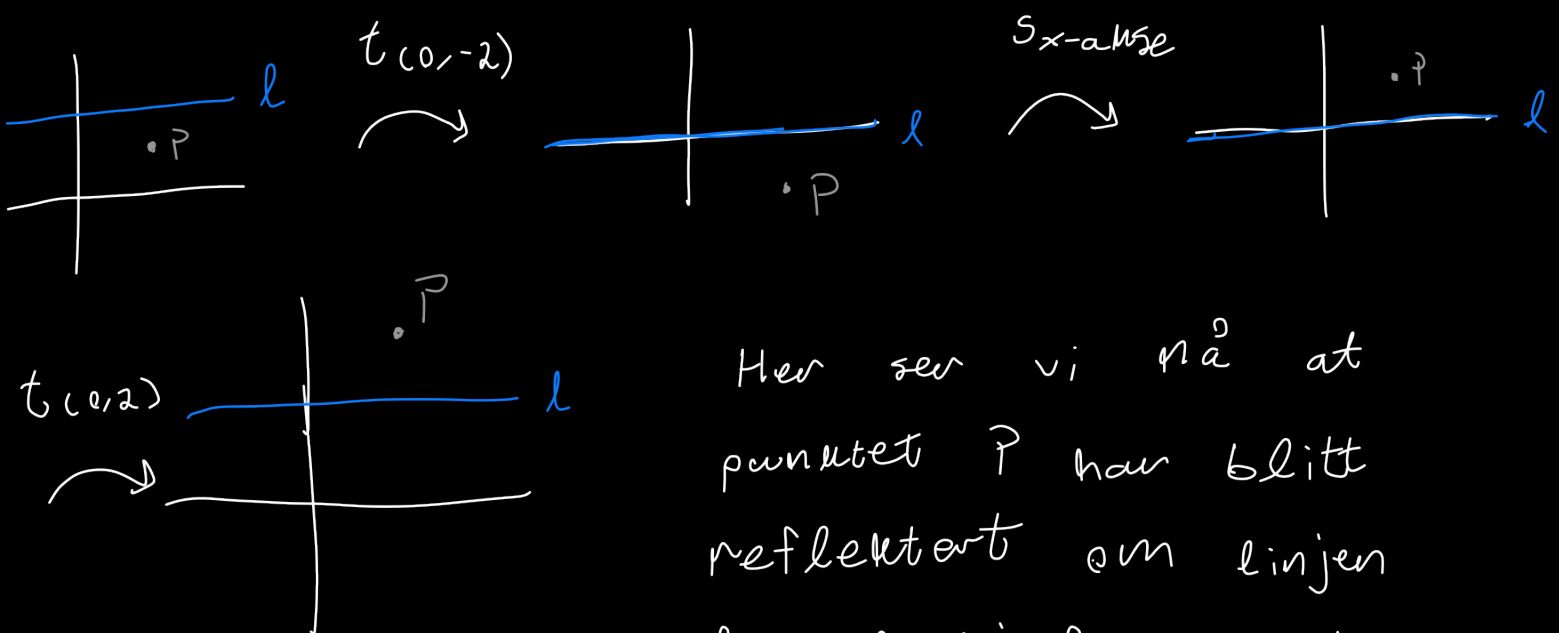 l
P
t(0,-2)
l
P
Sx-akse
P
l
t(0,2)
P
l
Her ser vi nå at
punktet P har blitt
reflektert om linjen